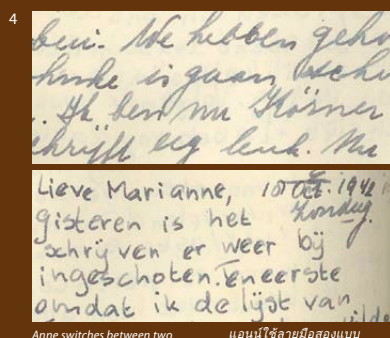 4
ben. We hebben geho
hnke is gaan schr
. Ik ben nu Körner
chrijft erg leuk. Nu
Lieve Marianne, 10 Oct. 1942
gisteren is het Zondag
schrijven er weer bij
ingeschoten. Ten eerste
omdat ik de lijst van
Anne switches between two
แอนน์ใช้ลายมือสองแบบ